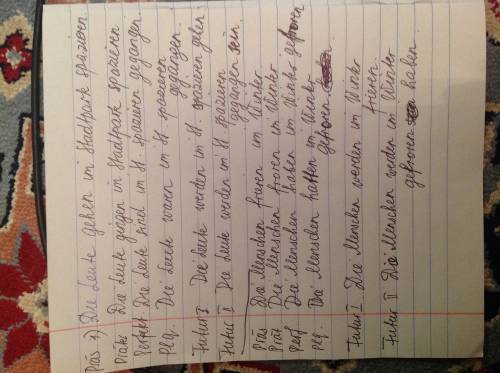 Präs 1) Die Leute gehen im Stadtpark spazieren
Prät. Die Leute gingen im Stadtpark spazieren
Perfekt Die Leute sind im St. spazieren gegangen.
Plq. Die Leute waren im St. spazieren
gegangen.
Futur I Die Leute werden im St. spazieren gehen.
Futur II Die Leute werden im St. spazieren
gegangen sein.
Präs Die Menschen frieren im Winter
Prät Die Menschen froren im Winter
Perf Die Menschen haben im Winter gefroren
Plq. Die Menschen hatten im Winter
gefroren
Futur I Die Menschen werden im Winter
frieren.
Futur II Die Menschen werden im Winter
gefroren haben